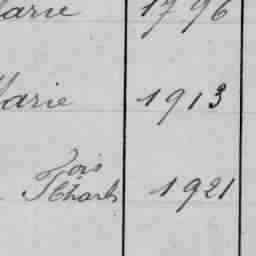 Marie 1796
Marie 1913
Fois
Charls 1921